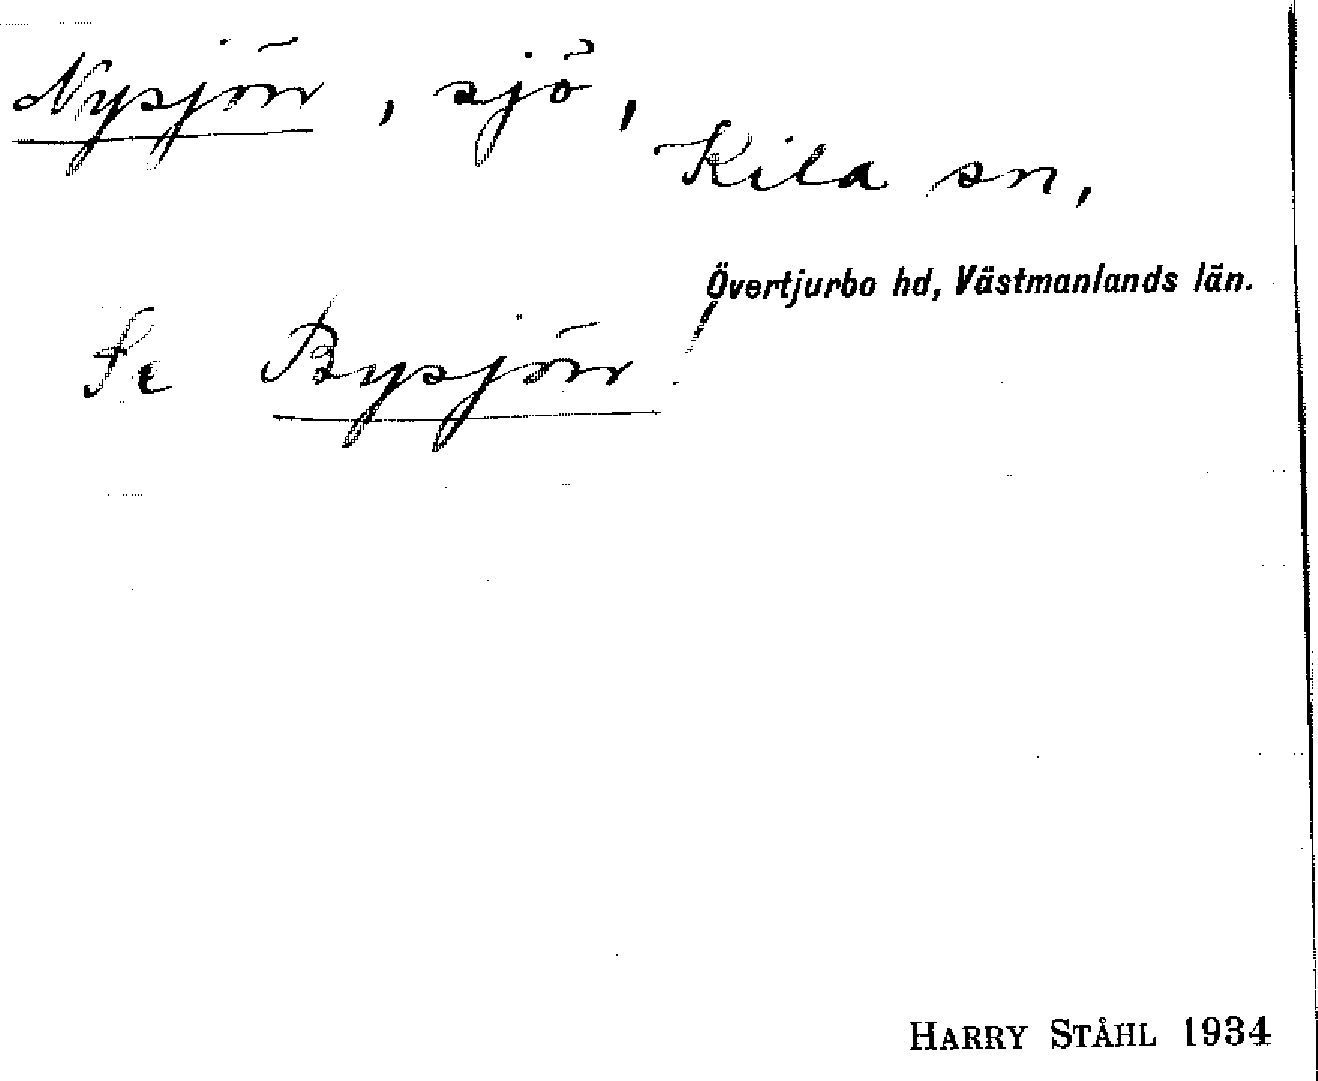 Nysjön, sjö,
Kila sn,
Övertjurbo hd, Västmanlands län.
Se Bysjön!
HARRY STÅHL 1934